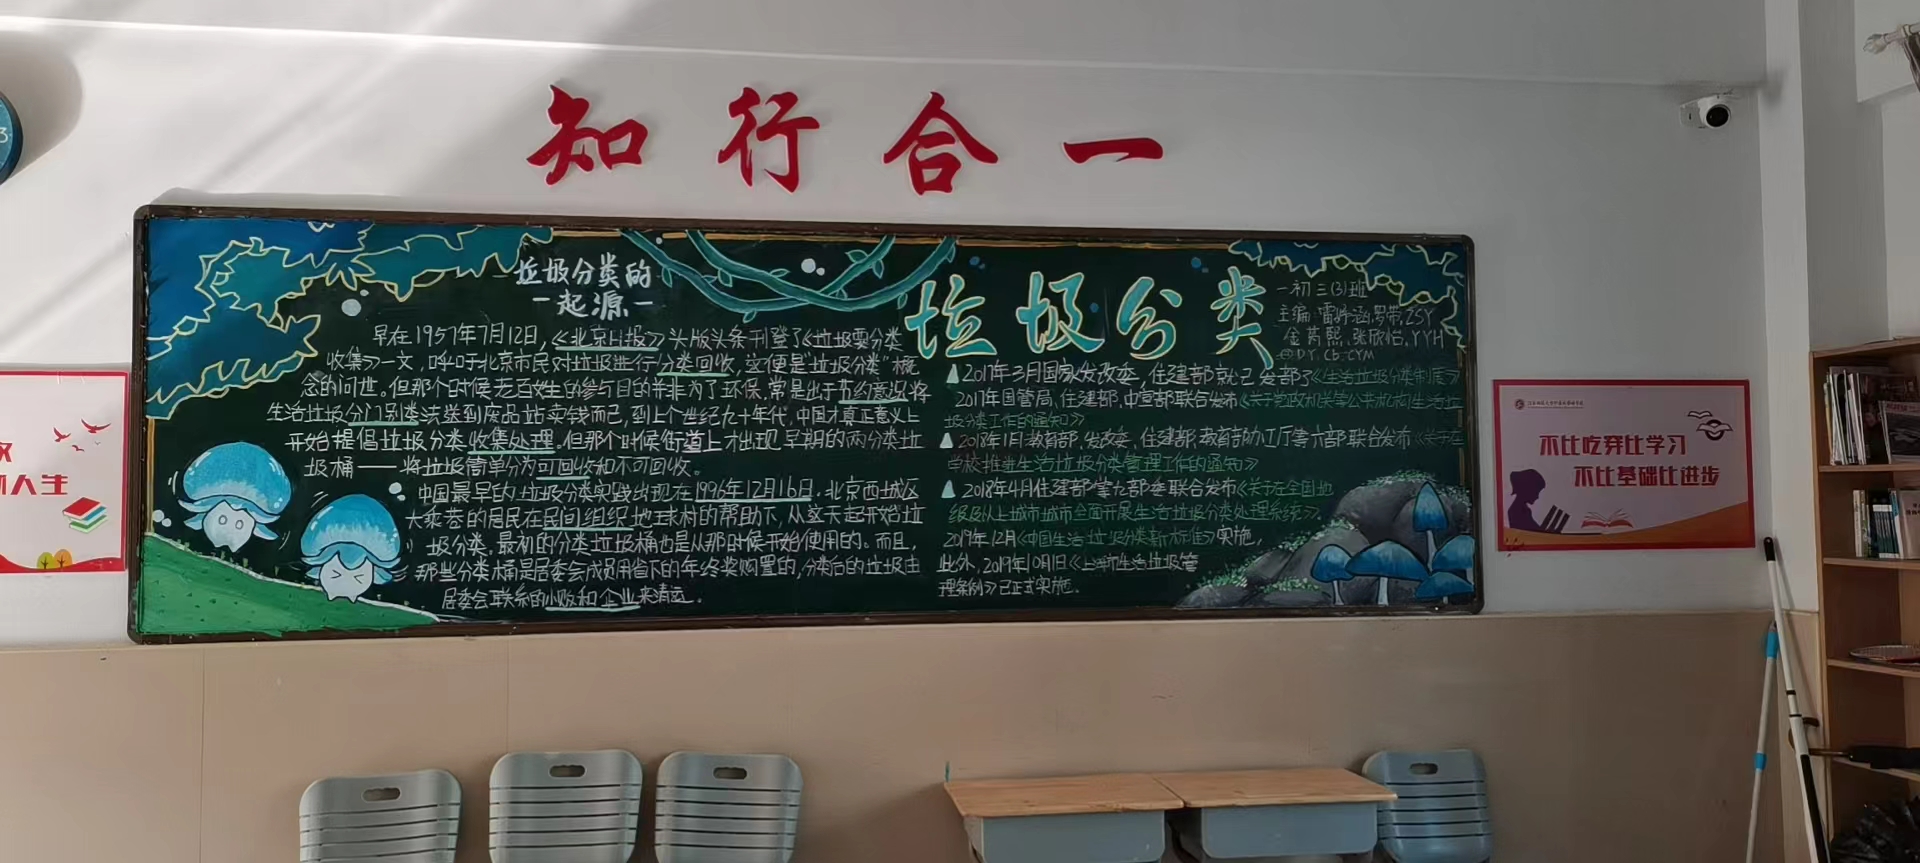 知行合一
垃圾分类的
一起源一
早在1957年7月12日,《北京日报》头版头条刊登了《垃圾要分类
收集》一文,呼吁北京市民对垃圾进行分类回收,这便是“垃圾分类”概
念的问世。但那个时候老百姓的参与目的并非为了环保,常是出于节约意识将
生活垃圾分门别类送到废品站卖钱而已,到上个世纪九十年代,中国才真正意义上
开始提倡垃圾分类收集处理。但那个时候街道上才出现早期的两分类垃
圾桶——将垃圾简单分为可回收和不可回收。
中国最早的垃圾分类实践出现在1996年12月16日,北京西城区
大乘巷的居民在民间组织地球村的帮助下,从这天起开始垃
圾分类。最初的分类垃圾桶也是从那时候开始使用的。而且,
那些分类桶是居委会成员用省下的年终奖购置的,分类后的垃圾由
居委会联系的小贩和企业来清运。
垃圾分类
一初三(3)班
主编:雷 涵,罗带,ZSY
金 熙,张欣怡,YYH
@DY.Cb.CYM
2017年3月国家发改委,住建部就已发部了《生活垃圾分类制度》
2017年国管局、住建部、中宣部联合发布《关于党政机关等公共机构生活垃
圾分类工作的通知》
2018年1月教育部,发改委,住建部,教育部办公厅等六部联合发布《关于在
学校推进生活垃圾分类管理工作的通知》
2018年4月住建部掌九部委联合发布《关于在全国地
级及以上城市城市全面开展生活垃圾分类处理系统》
2019年12月《中国生活垃圾分类新标准》实施,
此外,2019年10月1日《上海市生活垃圾管
理条例》已正式实施.
不比吃穿比学习
不比基础比进步
人生
3